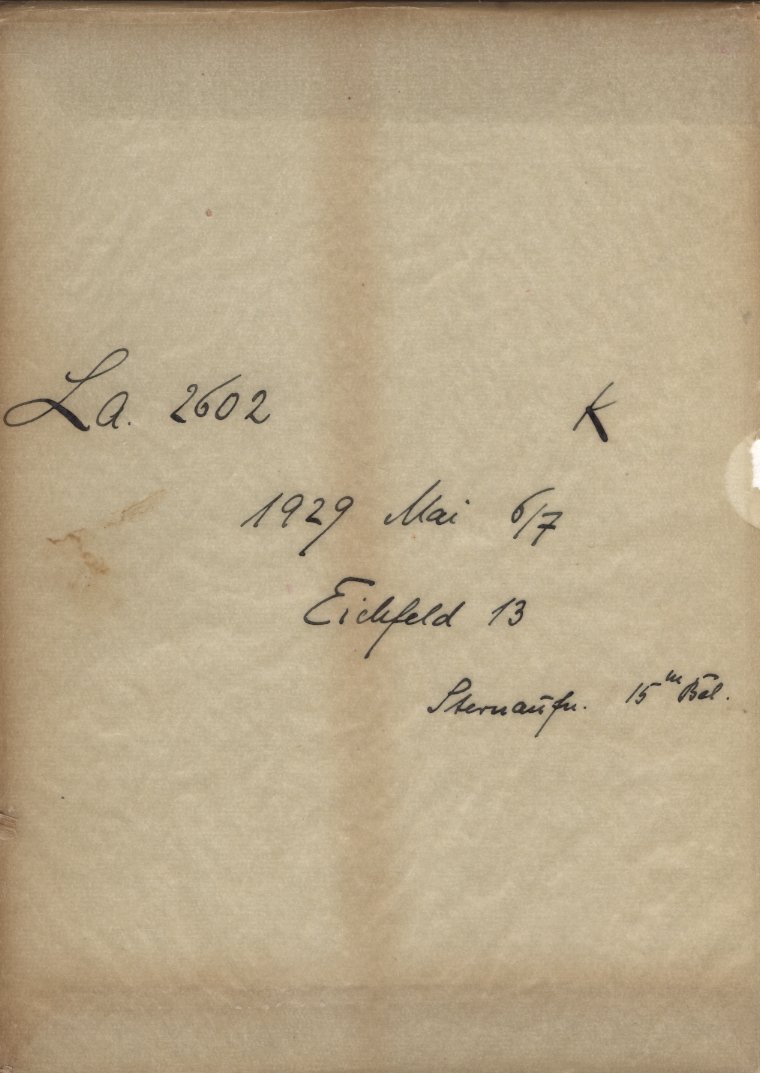 La. 2602 K
1929 Mai 6/7
Eichfeld 13
Sternaufn. 15ᵐ Bel.